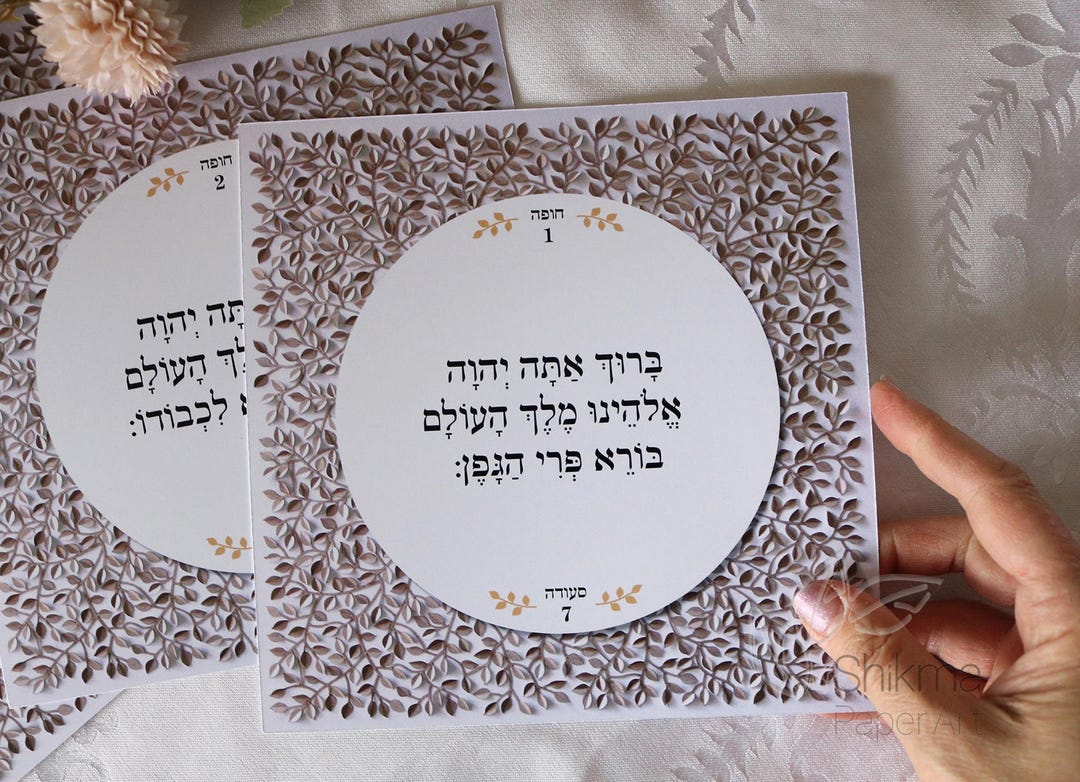 חופה
1
בָּרוּךְ אַתָּה יְהוָה
אֱלֹהֵינוּ מֶלֶךְ הָעוֹלָם
בּוֹרֵא פְּרִי הַגָּפֶן:
סעודה
7
חופה
2
יְהוָה
הָעוֹלָם
לִכְבוֹדוֹ:
Shikma
Paper Art